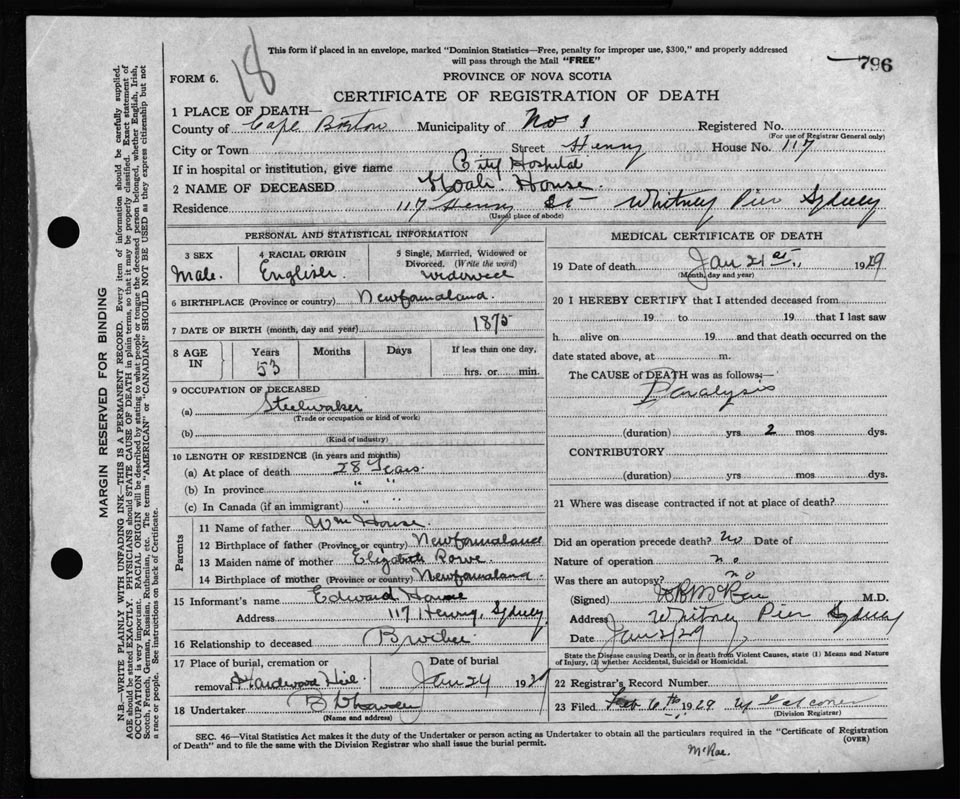 18
This form if placed in an envelope, marked "Dominion Statistics—Free, penalty for improper use, $300," and properly addressed
will pass through the Mail "FREE"
796
FORM 6.
PROVINCE OF NOVA SCOTIA
CERTIFICATE OF REGISTRATION OF DEATH
1 PLACE OF DEATH—
County of Cape Breton Municipality of No 1 Registered No.
(For use of Registrar General only)
City or Town Street Henry House No. 117
If in hospital or institution, give name City Hospital
2 NAME OF DECEASED Noah House.
Residence 117 Henry St Whitney Pier Sydney
(Usual place of abode)
PERSONAL AND STATISTICAL INFORMATION
3 SEX
Male
4 RACIAL ORIGIN
English
5 Single, Married, Widowed or
Divorced. (Write the word)
widowed
6 BIRTHPLACE (Province or country) Newfoundland.
7 DATE OF BIRTH (month, day and year) 1875
8 AGE IN
Years
53
Months
Days
If less than one day,
hrs. or min.
9 OCCUPATION OF DECEASED
(a) Steelworker
(Trade or occupation or kind of work)
(b)
(Kind of industry)
10 LENGTH OF RESIDENCE (in years and months)
(a) At place of death 28 Years.
(b) In province " "
(c) In Canada (if an immigrant) " "
Parents
11 Name of father Wm House.
12 Birthplace of father (Province or country) Newfoundland
13 Maiden name of mother Elizabeth Rowe
14 Birthplace of mother (Province or country) Newfoundland.
15 Informant's name Edward House
Address 117 Henry, Sydney
16 Relationship to deceased Brother
17 Place of burial, cremation or
removal Hardwood Hill
Date of burial
Jan 24 1929
18 Undertaker
(Name and address)
MEDICAL CERTIFICATE OF DEATH
19 Date of death Jan 21st., 1929
(Month, day and year)
20 I HEREBY CERTIFY that I attended deceased from
19 to 19 that I last saw
h alive on 19 and that death occurred on the
date stated above, at m.
The CAUSE of DEATH was as follows:—
Paralysis
(duration) yrs 2 mos dys.
CONTRIBUTORY
(duration) yrs mos dys.
21 Where was disease contracted if not at place of death?
Did an operation precede death? no Date of
Nature of operation no
Was there an autopsy? no
(Signed) McRae M.D.
Address Whitney Pier Sydney
Date Jan 2/29
State the Disease causing Death, or in death from Violent Causes, state (1) Means and Nature
of Injury, (2) whether Accidental, Suicidal or Homicidal.
22 Registrar's Record Number
23 Filed Feb 6th 1929 Falconer
(Division Registrar)
SEC. 46—Vital Statistics Act makes it the duty of the Undertaker or person acting as Undertaker to obtain all the particulars required in the "Certificate of Registration
of Death" and to file the same with the Division Registrar who shall issue the burial permit.
(OVER)
McRae.
MARGIN RESERVED FOR BINDING
N.B.—WRITE PLAINLY WITH UNFADING INK—THIS IS A PERMANENT RECORD. Every item of information should be carefully supplied.
AGE should be stated EXACTLY. PHYSICIANS should STATE CAUSE OF DEATH in plain terms, so that it may be properly classified. Exact statement of
OCCUPATION is very important. RACIAL ORIGIN will be described by stating to what people or tongue the deceased person belonged, whether English, Irish,
Scotch, French, German, Russian, Ruthenian, etc. The terms "AMERICAN" or "CANADIAN" SHOULD NOT BE USED as they express citizenship but not
a race or people. See instructions on back of Certificate.